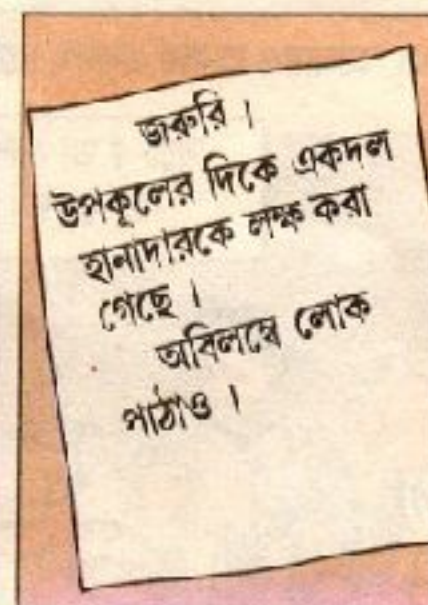 জরুরি ।
উপকূলের দিকে একদল
হানাদারকে লক্ষ করা
গেছে ।
অবিলম্বে লোক
পাঠাও ।